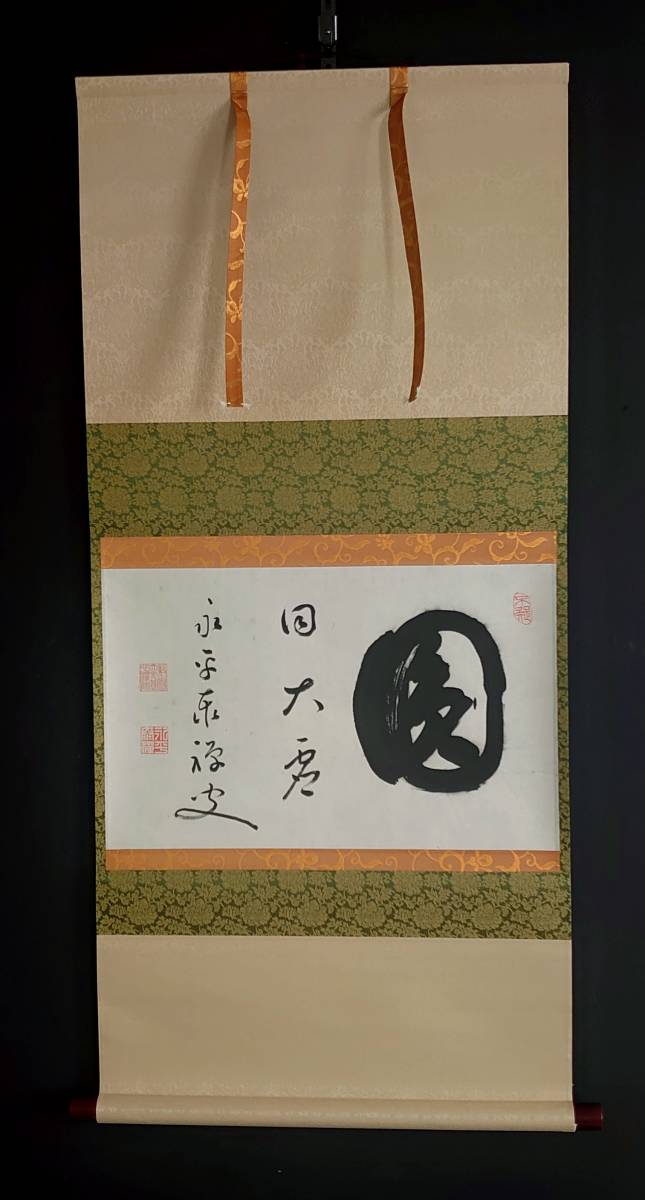 圓
同大虚
永平泰禅叟